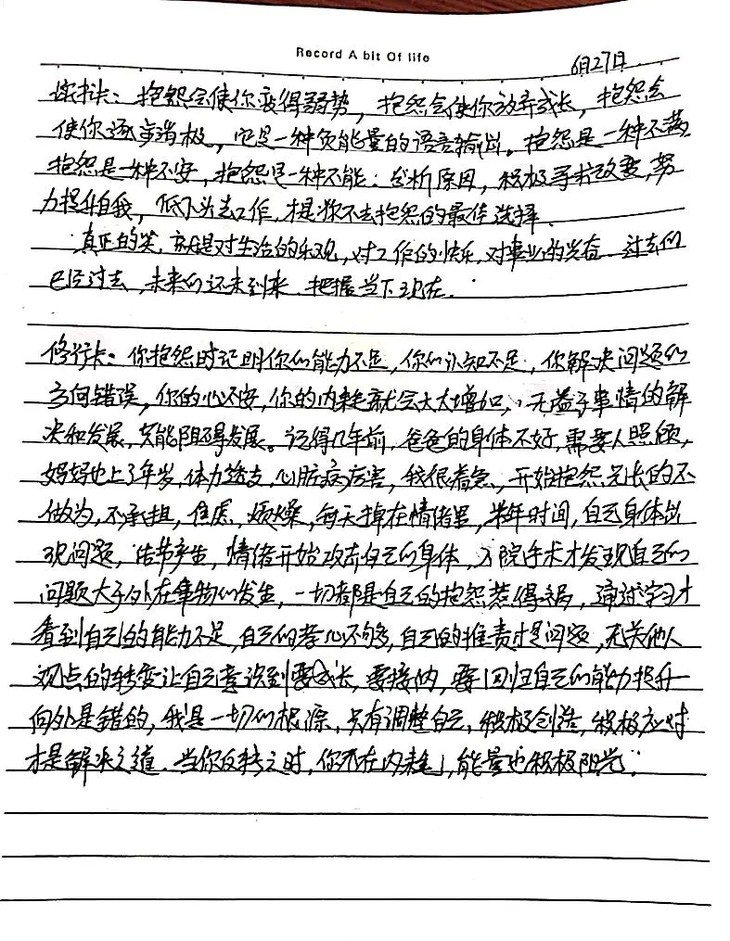 Record A bit Of life
6月27日
抱怨会使你变得弱势，抱怨会使你放弃成长，抱怨会
使你逐步消极，它是一种负能量的语言输出。抱怨是一种不满
抱怨是一种不安，抱怨是一种不能：分析原因，积极寻找改变，努
力提升自我，低下头去工作，才是你不去抱怨的最佳选择。
真正的笑，就是对生活的乐观，对工作的快乐，对事业的兴奋。过去的
已经过去，未来的还未到来，把握当下现在。
修行卡：你抱怨时证明你的能力不足，你的认知不足，你解决问题的
方向错误，你的心不安，你的内耗就会大大增加，无益于事情的解
决和发展，只能阻碍发展。记得几年前，爸爸的身体不好，需要人照顾，
妈妈也上了年岁，体力透支，心脏病厉害，我很着急，开始抱怨兄长的不
做为，不承担，焦虑，烦燥，每天掉在情绪里，半年时间，自己身体出
现问题，结节产生，情绪开始攻击自己的身体，入院手术才发现自己的
问题大于外在事物的发生，一切都是自己的抱怨惹得祸，通过学习才
看到自己的能力不足，自己的孝心不够，自己的推责才是问题，无关他人
观点的转变让自己意识到要成长，要接纳，要回归自己的能力提升
向外是错的，我是一切的根源，只有调整自己，积极创造，积极应对
才是解决之道。当你反转之时，你不在内耗，能量也积极阳光。